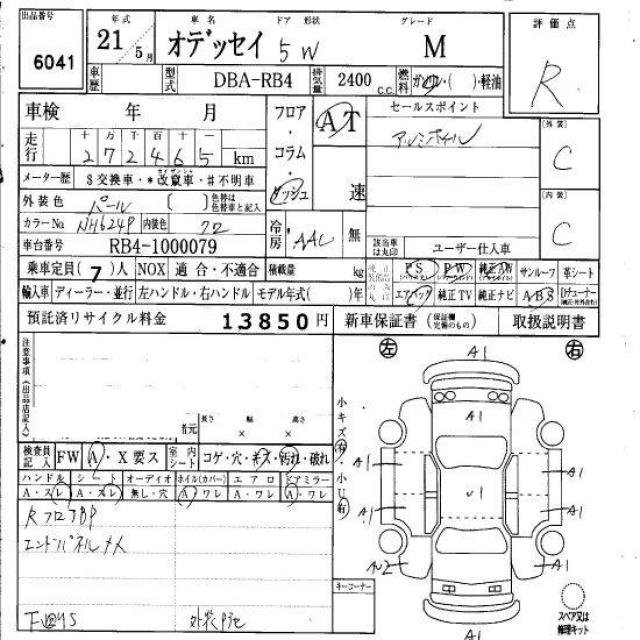 出品番号 年式 車名 ドア 形状 グレード 評価点
6041 21 5月 オデッセイ 5W M R
車歴 型式 DBA-RB4 排気量 2400 c.c. 燃料 ガソリン・( )・軽油
車検 年 月 フロア・コラム・ダッシュ AT 速 セールスポイント
アルミホイル
走行 十万千百十一
272465 km
メーター歴 $交換車・*改竄車・#不明車
外装色 パール ( ) 色替は色替車と記入
カラーNo NH624P 内装色 クロ
冷房 AAC 無
[外装] C
[内装] C
車台番号 RB4-1000079
該当車は丸印 ユーザー仕入車
乗車定員(7)人 NOX 適合・不適合 積載量 kg PS PW 純正AW サンルーフ 革シート
輸入車 ディーラー・並行 左ハンドル・右ハンドル モデル年式( )年 エアバッグ 純正TV 純正ナビ ABS
預託済リサイクル料金 13850円 新車保証書 (保証欄完備のもの) 取扱説明書
注意事項(出品店記入)
諸元 長さ × 幅 × 高さ
検査員記入 FW A・X要ス 室内シート コゲ・穴・キズ・汚れ・破れ
ハンドル シート オーディオ ホイル(カバー) エアロ ドアミラー
A・スレ A・スレ 無し・穴 A・ワレ A・ワレ A・ワレ
RフロアBP
エンドパネルナメ
下廻りS
左 右
小キズ有・小U有
A1
A1
A1 A1
U1
A1 A1
A1
A1
キーコーナー
スペア又は修理キット